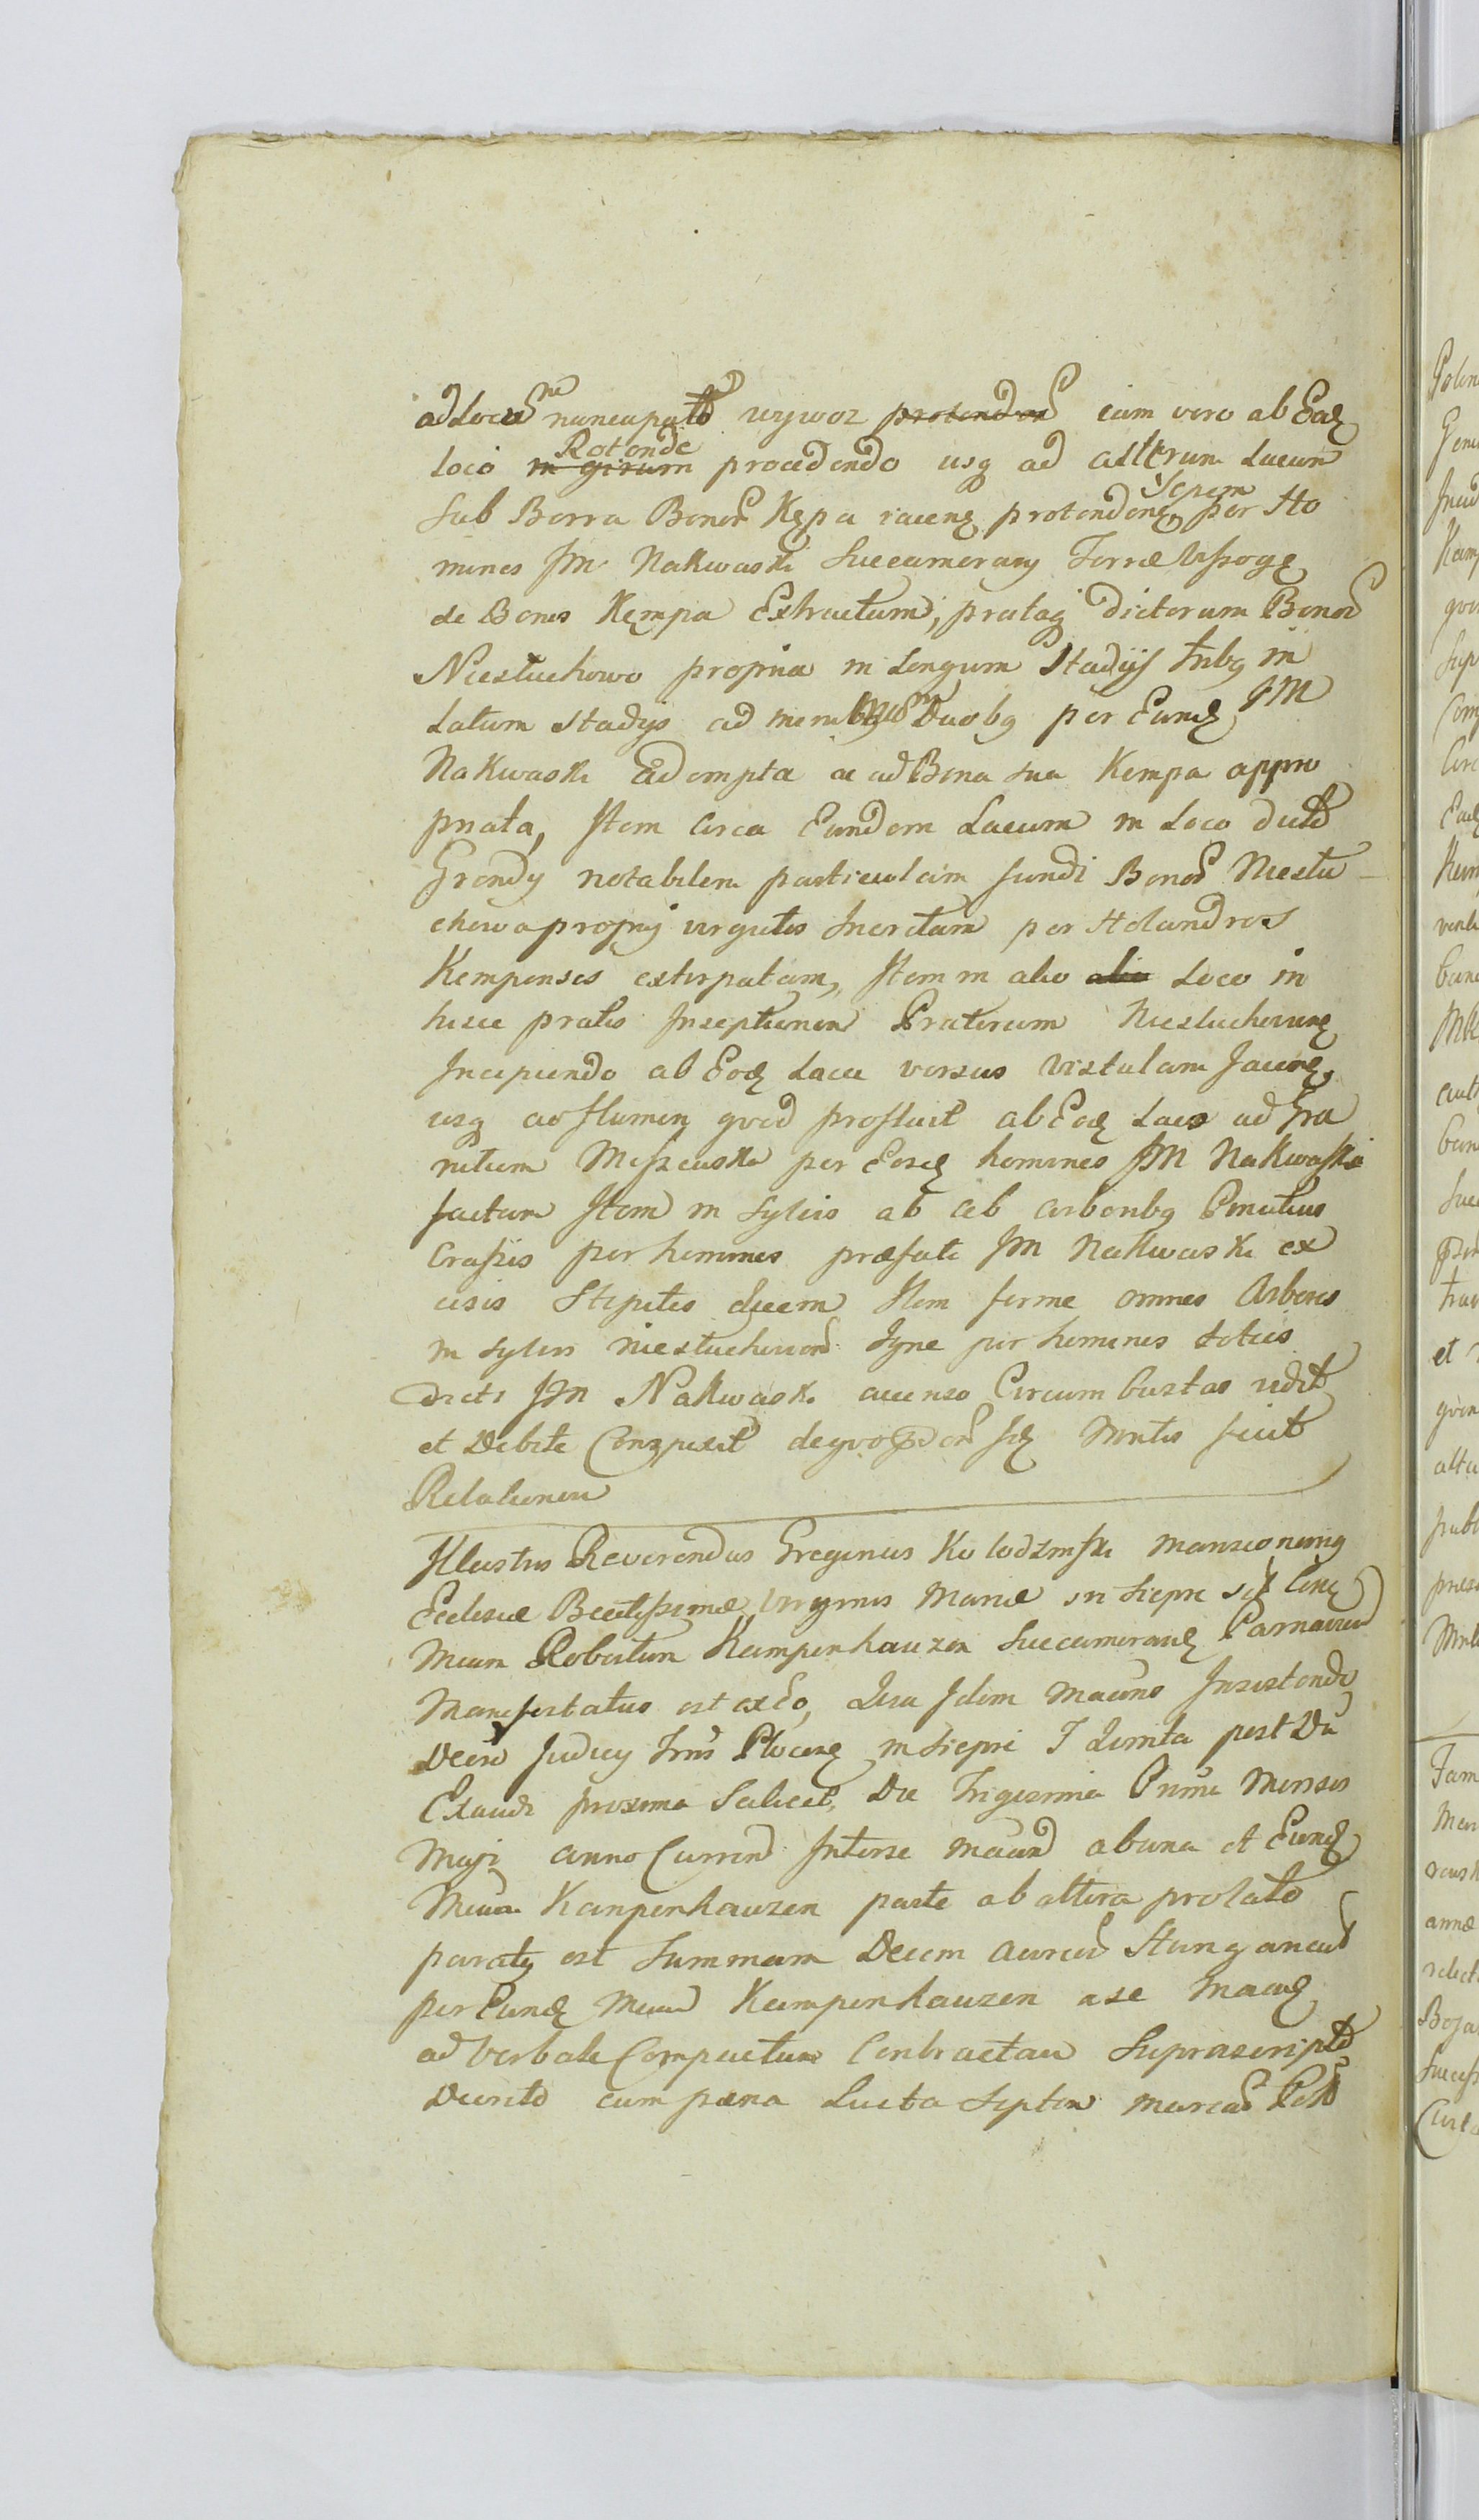 ad Locu ne nuncupatt wywoz protenden eum vero ab Eaq
Rotonde
loco in girum procedendo usq ad alterum Lacum
Sepem
Sub Borra Bonor Kępa iacenq protendenq per Ho
mines JM Nakwaski Succamerarij Terræ Wyszogq
de Bonis Kempa Extructum, prataq dictorum Bonor
Niestuchowo propria in Longum Stadijs tribq in
Latum Stadijs ad Duobq per Eunq JM
Nakwaski adempta ac ad Bona sua Kempa appro
priata, Item circa Eundem Lacum in Loco dicto
Grondy notabilem particulam fundi Bonor Niestu
chowa proprij virgultis Incretam per Holandros
Kempenses extirpatam, Item in alio alio Loco in
hisce pratis Inseptionem Pratorum Niestuchovienq
Incipiendo ab Eoq Lacu versus Vistulam Jacenq
usq ad flumen qvod profluit ab Eoq Lacu ad Gra
nitiem Miszewska per Eosq homines JM Nakwaski
factam Item in Sylvis ab ab arboribq Penitius
Crassis per homines præfati JM Nakwaski ex
cisis Stipites decem Item ferme omnes Arbores
in Sylvis Niestuchovien Igne per homines toties
dicti JM Nakwaski accenso Circumbustas vidit
et Debite Conspexit de qvo fiq Mntis fecit
Relationem
Illustris Reverendus Gregorius Kolodzinski Mansionariq
Ecclesiæ Beatissimæ Virginis Mariæ in Siepre Conq
Mcum Robertum Kampenhauzen Succameranq Parnavien
Manifestatus est ex eo, Quia Idem Macns Insistendo
Decro Judicy Trris Plocenq in Siepre F Quinta post Da
Exaudi proxima Scilicet Die Trigesima Prima Mensis
Maji anno Curren Interse Macan ab una et Eunq
Mcum Kampenhauzen parte ab altera prolato
paratq est Summam Decem aureor Hungarical
per Eunq Mcum Kampenhauzen a se Macnq
ad Verbale Compactum Contractam Suprascripto
Decreto cum pæna Lucta Septem marcar Poll